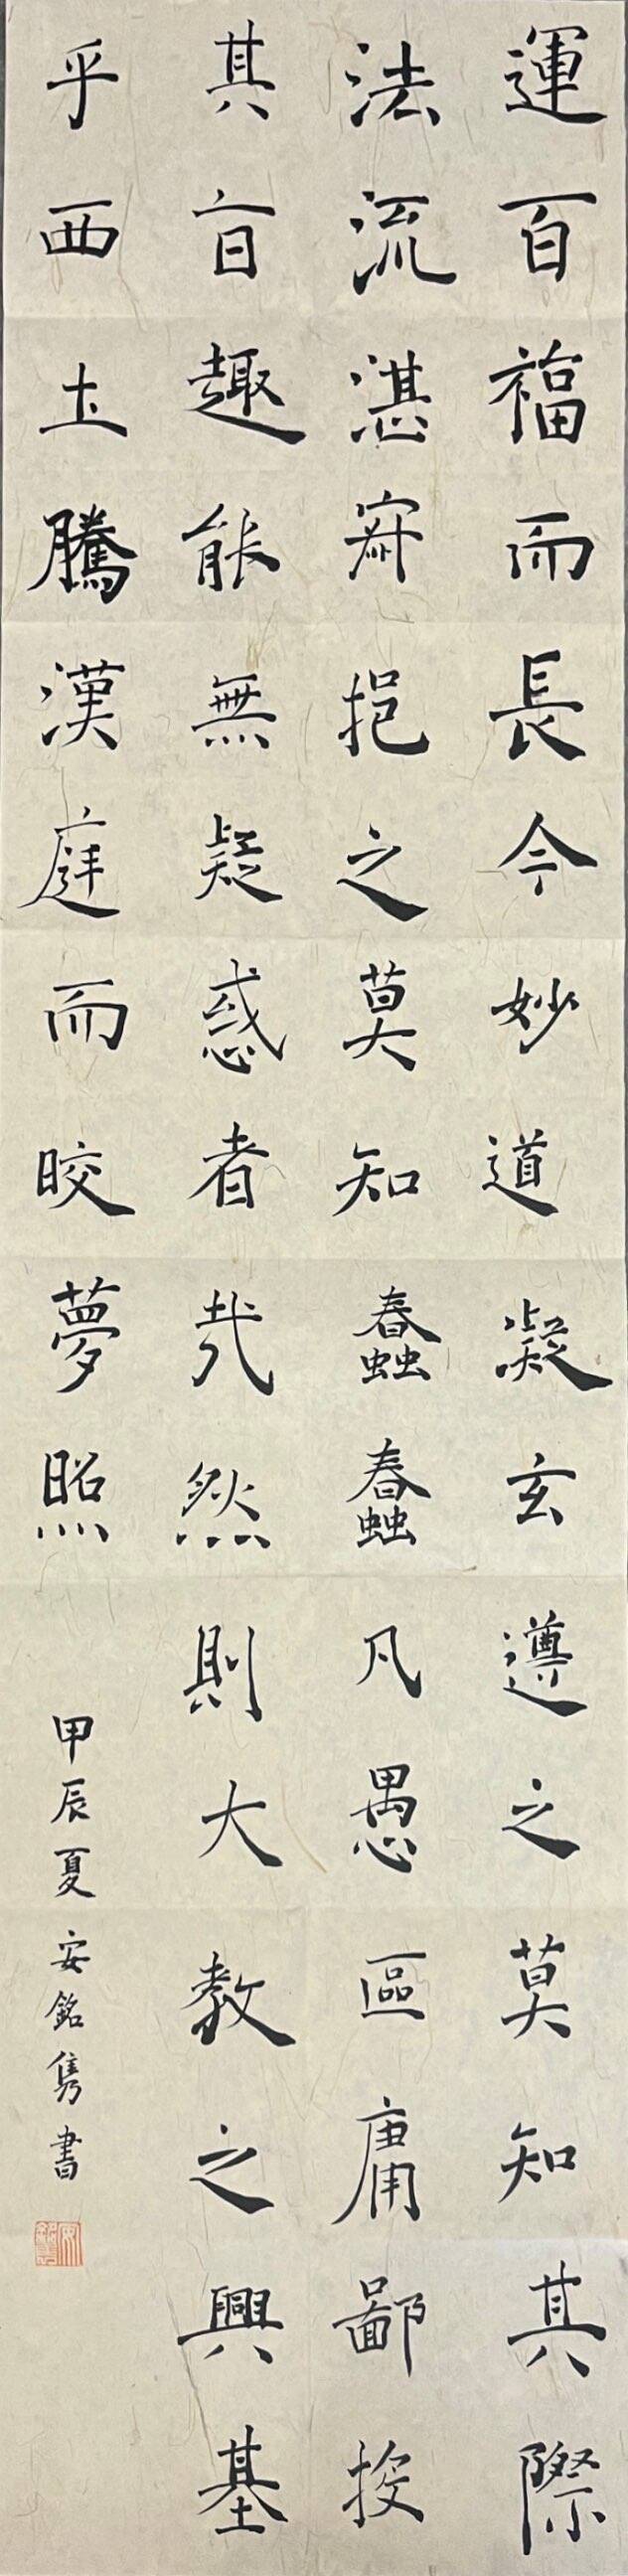 運百福而長今妙道凝玄遵之莫知其際
法流湛寂挹之莫知蠢蠢凡愚區區庸鄙投
其旨趣能無疑惑者哉然則大教之興基
乎西土騰漢庭而皎夢照
甲辰夏安銘雋書